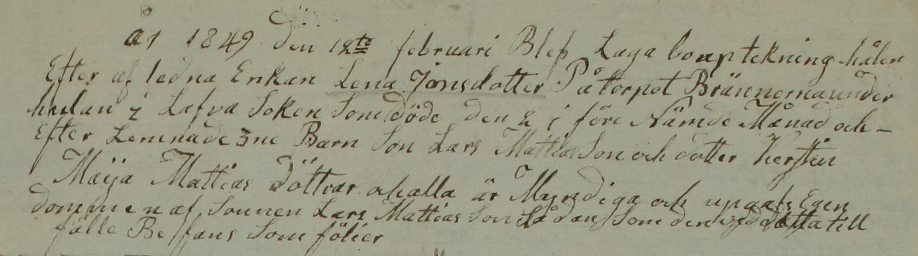 år 1849 den 12te februari Blef Laga bouptekning hålen
Efter af ledna Enkan Lena Jonsdotter På torpet Brännemaunder
hulan i Lafva Soken Som döde den 2 i före Nämde Månad och -
Efter Lemnade 3ne Barn Son Lars Mattias Son och dotter Kerstin
Maija Mattias Döttrar ochalla är Myndiga och upgafs Egen
dommen af Sonnen Lars Mattias Son Så dan Som den vid detta till
fälle Befans Som följer